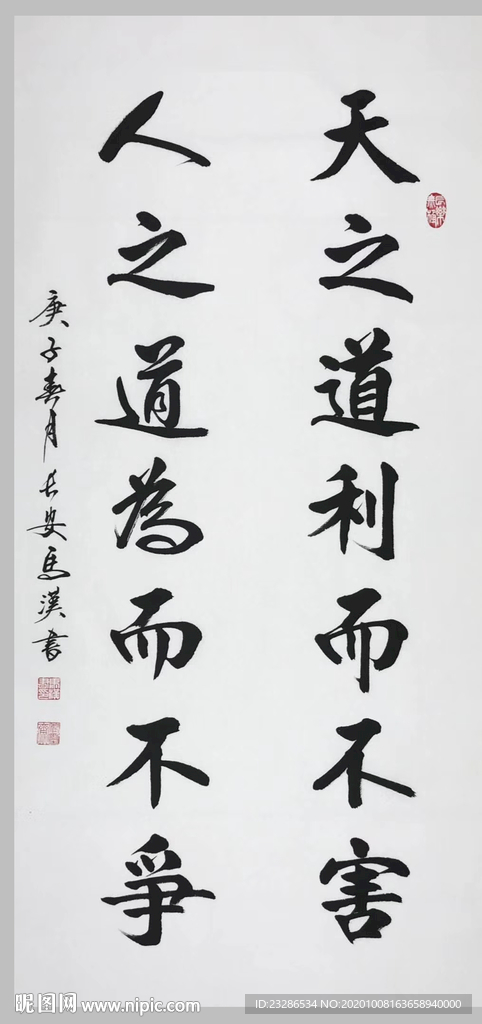 天之道利而不害
人之道為而不爭
庚子春月長安馬漢書
昵图网 www.nipic.com
ID:23286534 NO:20201008163658940000